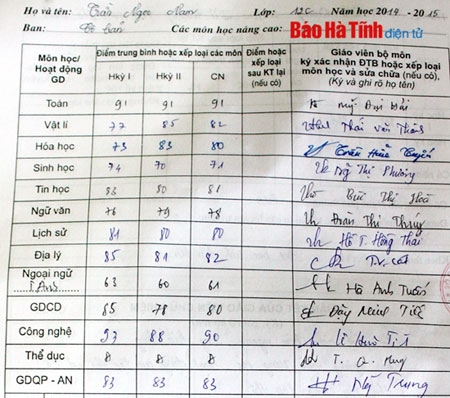 Họ và tên: Trần Ngọc Nam Lớp: 12C Năm học 2014 - 2015
Ban: Cơ bản Các môn học nâng cao: Báo Hà Tĩnh điện tử
Môn học/ Hoạt động GD
Điểm trung bình hoặc xếp loại các môn
Hkỳ I Hkỳ II CN
Điểm hoặc xếp loại sau KT lại (nếu có)
Giáo viên bộ môn ký xác nhận ĐTB hoặc xếp loại môn học và sửa chữa (nếu có), (Ký và ghi rõ họ tên)
Toán 91 91 91
Vật lí 77 85 82 Thái Văn
Hóa học 73 83 80 Trần
Sinh học 74 70 71 Thị Phương
Tin học 83 80 81 Bùi Thị Hoa
Ngữ văn 76 79 78 Đoàn Thị Thúy
Lịch sử 81 80 80 Hồ T. Hồng Thái
Địa lý 85 81 82
Ngoại ngữ T.Anh 63 60 61 Hà Anh Tuấn
GDCD 85 78 80
Công nghệ 93 88 90 Lê
Thể dục Đ Đ Đ
GDQP - AN 83 83 83 Trung